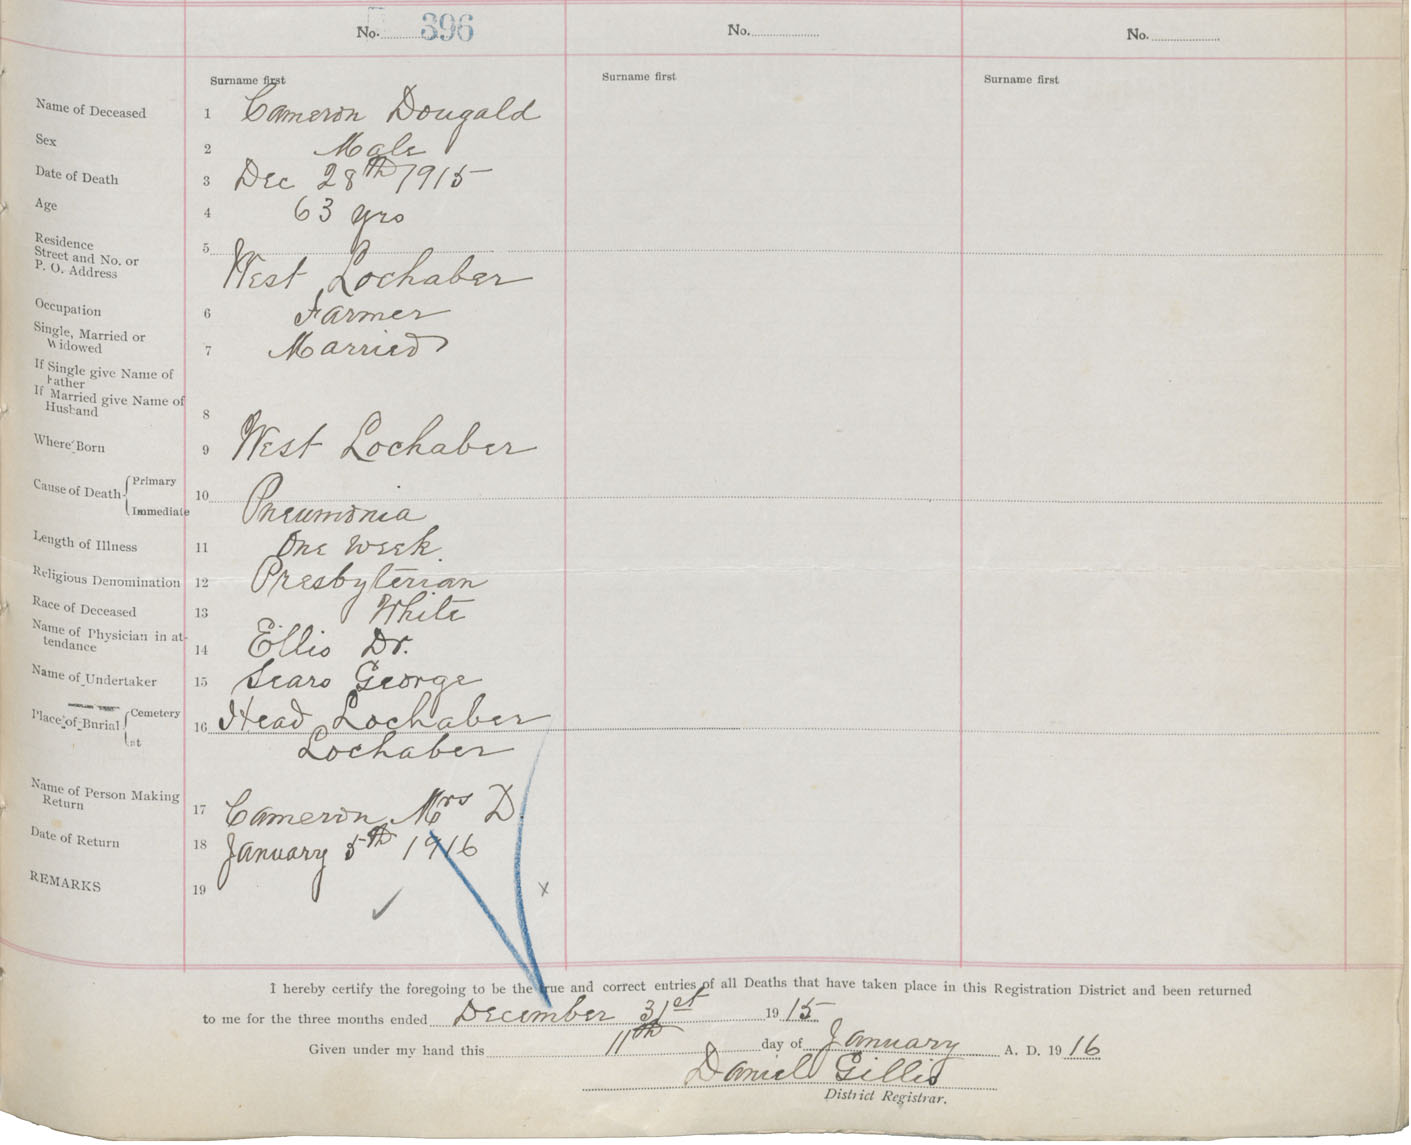 No. 396 No. No.
Surname first Surname first Surname first
Name of Deceased 1 Cameron Dougald
Sex 2 Male
Date of Death 3 Dec 28th 1915
Age 4 63 yrs
Residence
Street and No. or
P. O. Address 5 West Lochaber
Occupation 6 Farmer
Single, Married or
Widowed 7 Married
If Single give Name of
Father
If Married give Name of
Husband 8
Where Born 9 West Lochaber
Cause of Death Primary
Immediate 10 Pneumonia
Length of Illness 11 One week
Religious Denomination 12 Presbyterian
Race of Deceased 13 White
Name of Physician in at-
tendance 14 Ellis Dr.
Name of Undertaker 15 Sears George
Place of Burial Cemetery 16 Head Lochaber
at Lochaber
Name of Person Making
Return 17 Cameron Mrs D.
Date of Return 18 January 5th 1916
REMARKS 19
I hereby certify the foregoing to be the true and correct entries of all Deaths that have taken place in this Registration District and been returned
to me for the three months ended December 31st 1915
Given under my hand this 11th day of January A. D. 1916
Daniel Gillis
District Registrar.